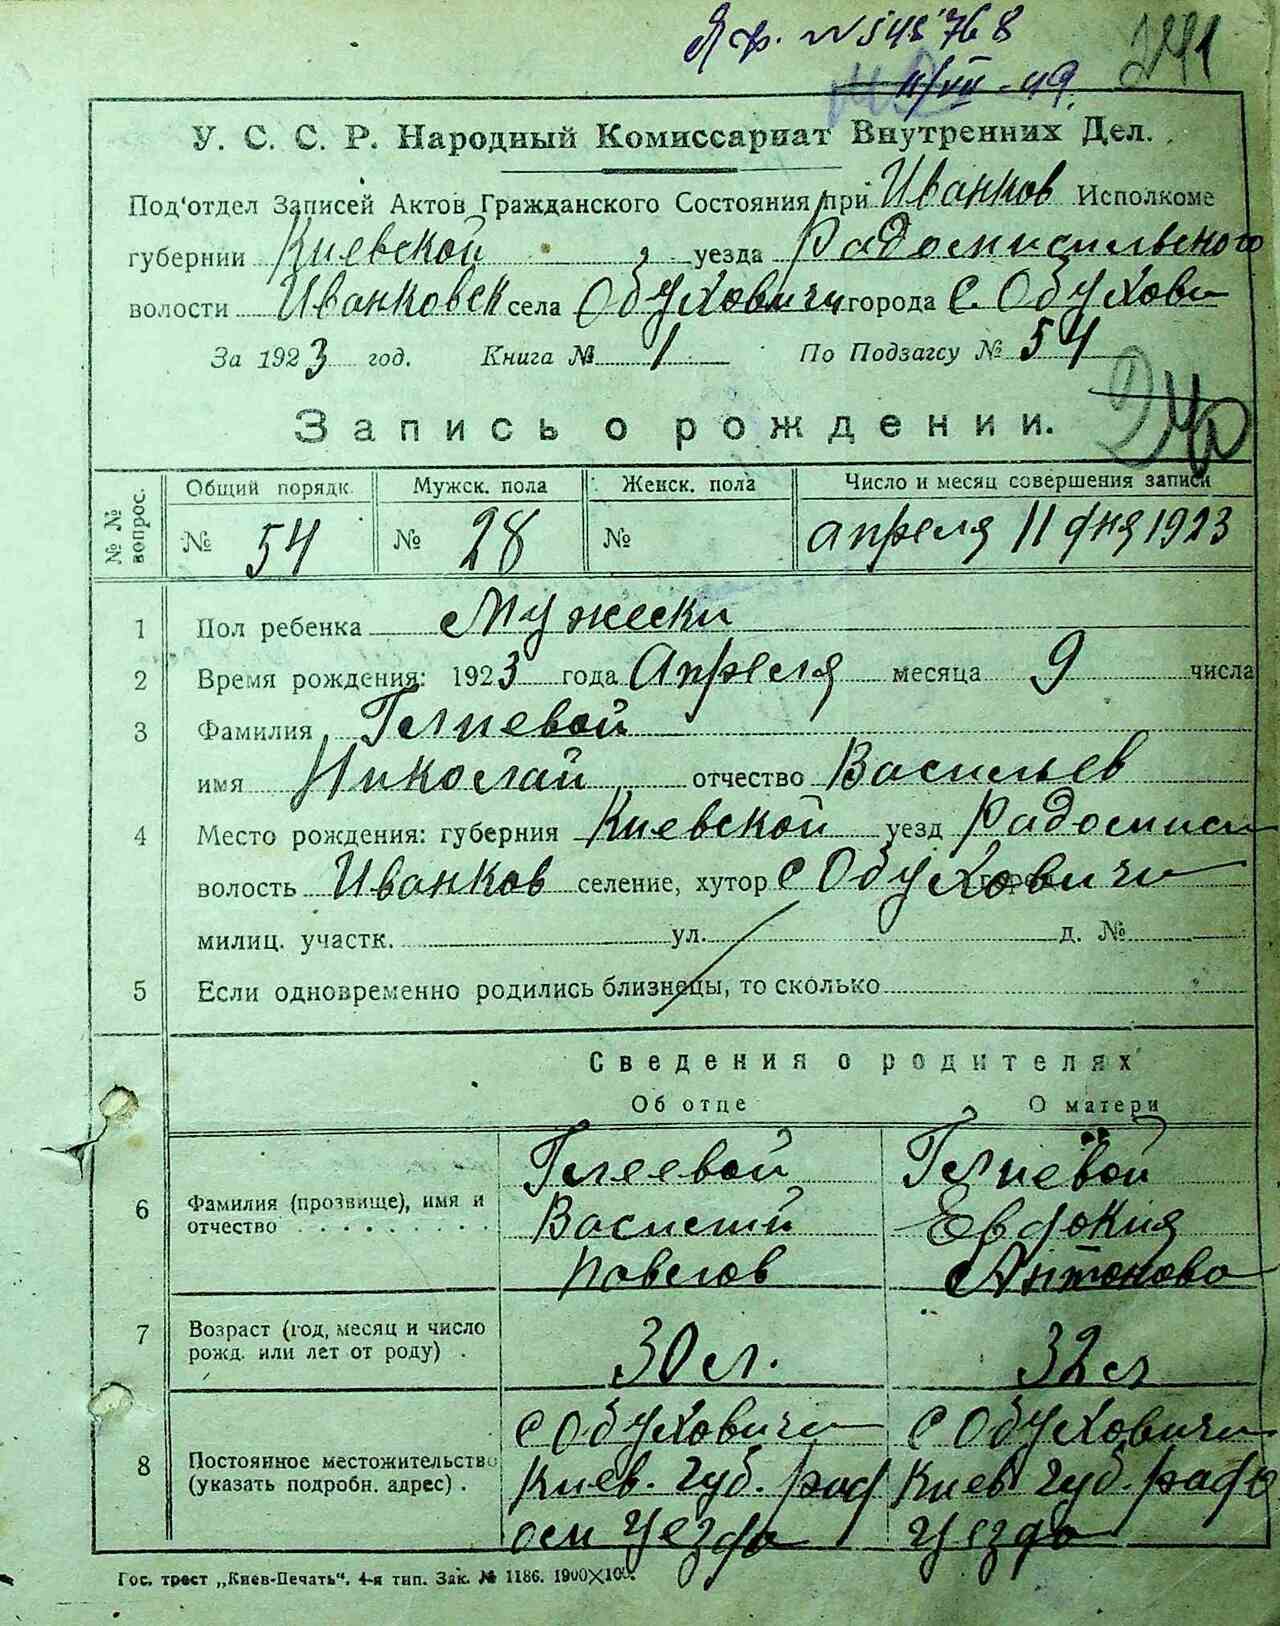 Яф. №545768
11/VII - 49.
291
У. С. С. Р. Народный Комиссариат Внутренних Дел.
Под'отдел Записей Актов Гражданского Состояния при Иванков Исполкоме
губернии Киевской уезда Радомисильского
волости Иванковск села Обуховичи города с. Обухови
За 1923 год. Книга № 1 По Подзагсу № 54
Запись о рождении.
№ № вопрос.
Общий порядк. Мужск. пола Женск. пола Число и месяц совершения записи
№ 54 № 28 № апреля 11 дня 1923
1 Пол ребенка Мужески
2 Время рождения: 1923 года Апреля месяца 9 числа
3 Фамилия Гелиевой
имя Николай отчество Васильев
4 Место рождения: губерния Киевской уезд Радомисл
волость Иванков селение, хутор с Обуховичи
милиц. участк. ул. д. №
5 Если одновременно родились близнецы, то сколько
Сведения о родителях
Об отце О матери
6 Фамилия (прозвище), имя и отчество
Гелеевой
Василий
Павлов
Гелиевой
Евдокия
Антонова
7 Возраст (год, месяц и число рожд. или лет от роду) .
30 л. 32 л
8 Постоянное местожительство (указать подробн. адрес) .
с Обуховичи
Киев. губ. рад
ом уезда
с Обуховичи
Киев губ. радо
уезда
Гос. трест „Киев-Печать“. 4-я тип. Зак. № 1186. 1900×100.